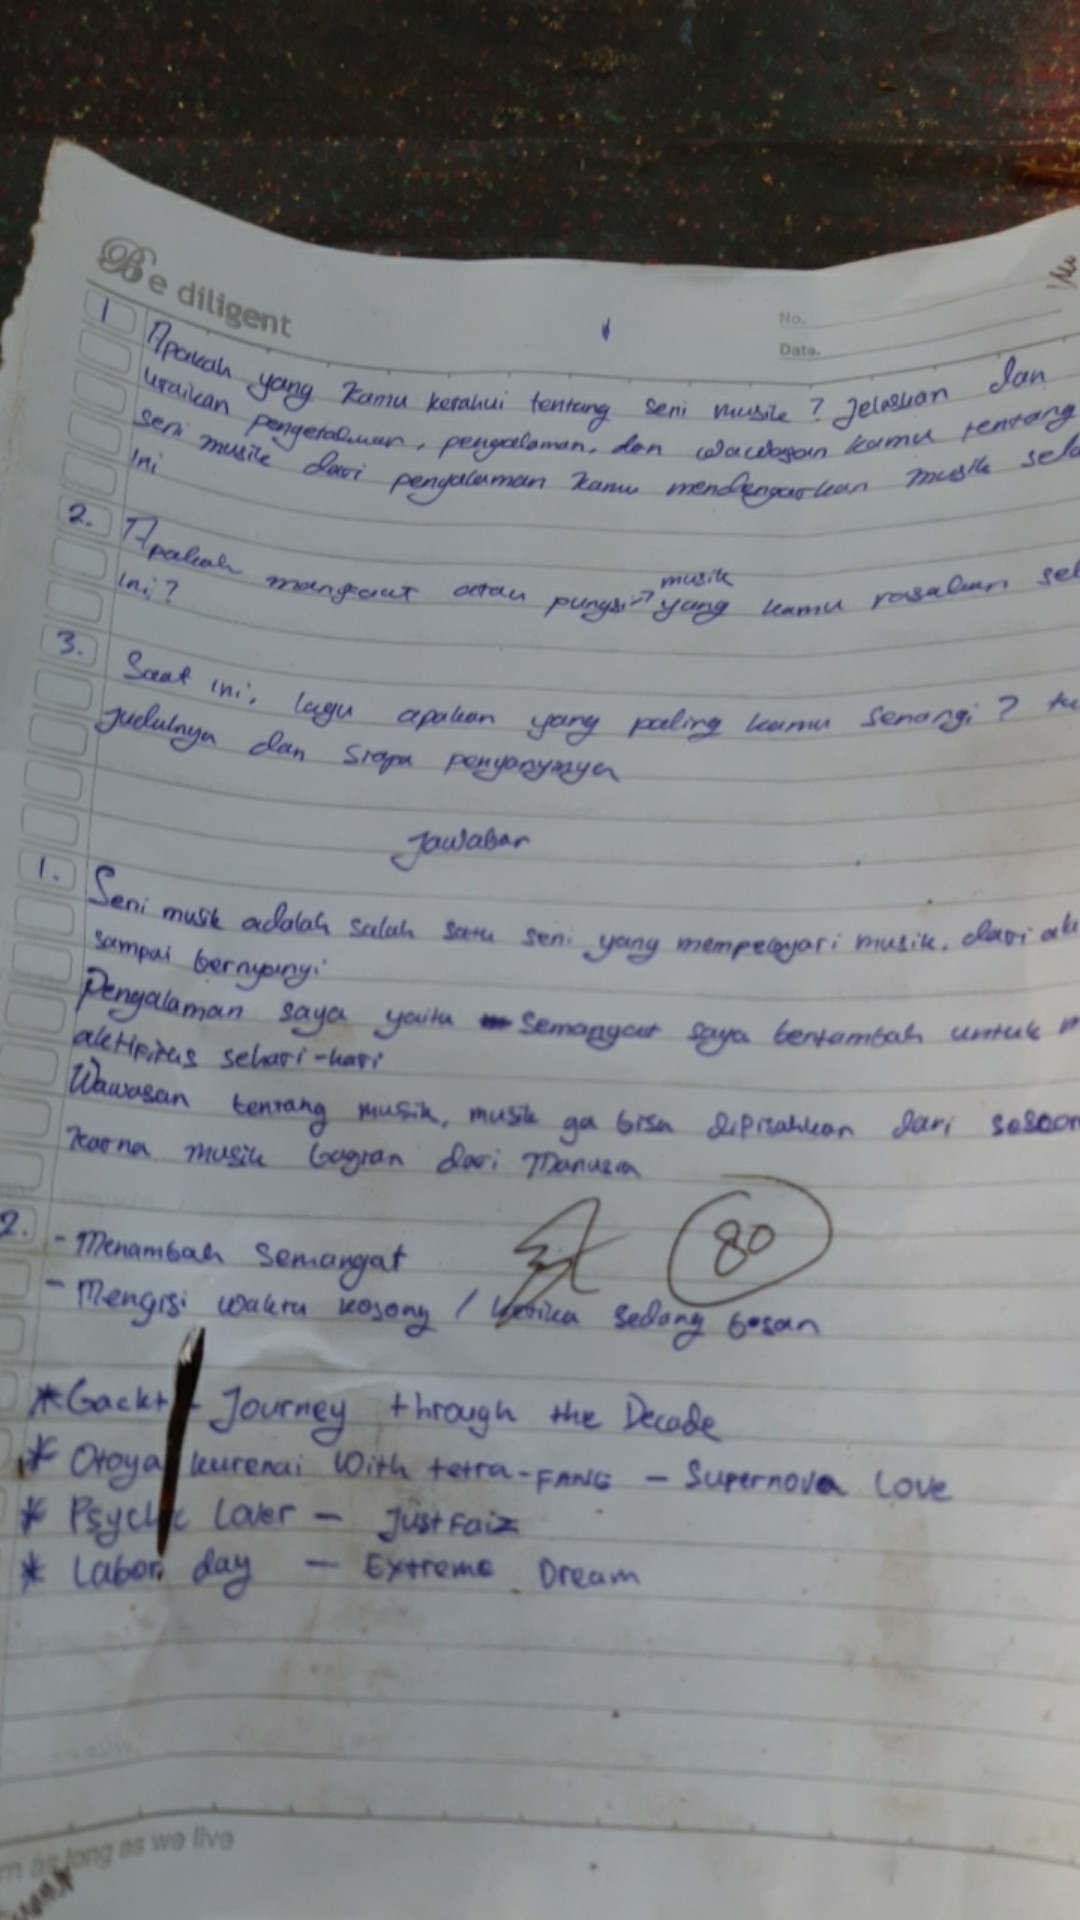 Be diligent
No.
Date.
1 Apakah yang kamu ketahui tentang seni musik? Jelaskan dan
uraikan pengetahuan, pengalaman, dan wawasan kamu tentang
seni musik dari pengalaman kamu mendengarkan musik sela
ini
2. Apakah mangfaat atau pungsi musik yang kamu rasakan sel
ini?
3. Saat ini, lagu apakan yang paling kamu senangi? tu
judulnya dan siapa penyanyinya
Jawaban
1. Seni musik adalah salah satu seni yang mempelajari musik, dari al
sampai bernyanyi
Pengalaman saya yaitu semangat saya bertambah untuk m
aktipitas sehari-hari
Wawasan tentang musik, musik ga bisa dipisahkan dari seseor
karna musik bagian dari manusia
2. - Menambah semangat
- Mengisi waktu kosong / ketika sedang bosan
80
* Gackt - Journey through the Decade
* Otoya kurenai With tetra-FANG - Supernova Love
* Psychic Lover - Just Faiz
* Labor day - Extreme Dream
as long as we live